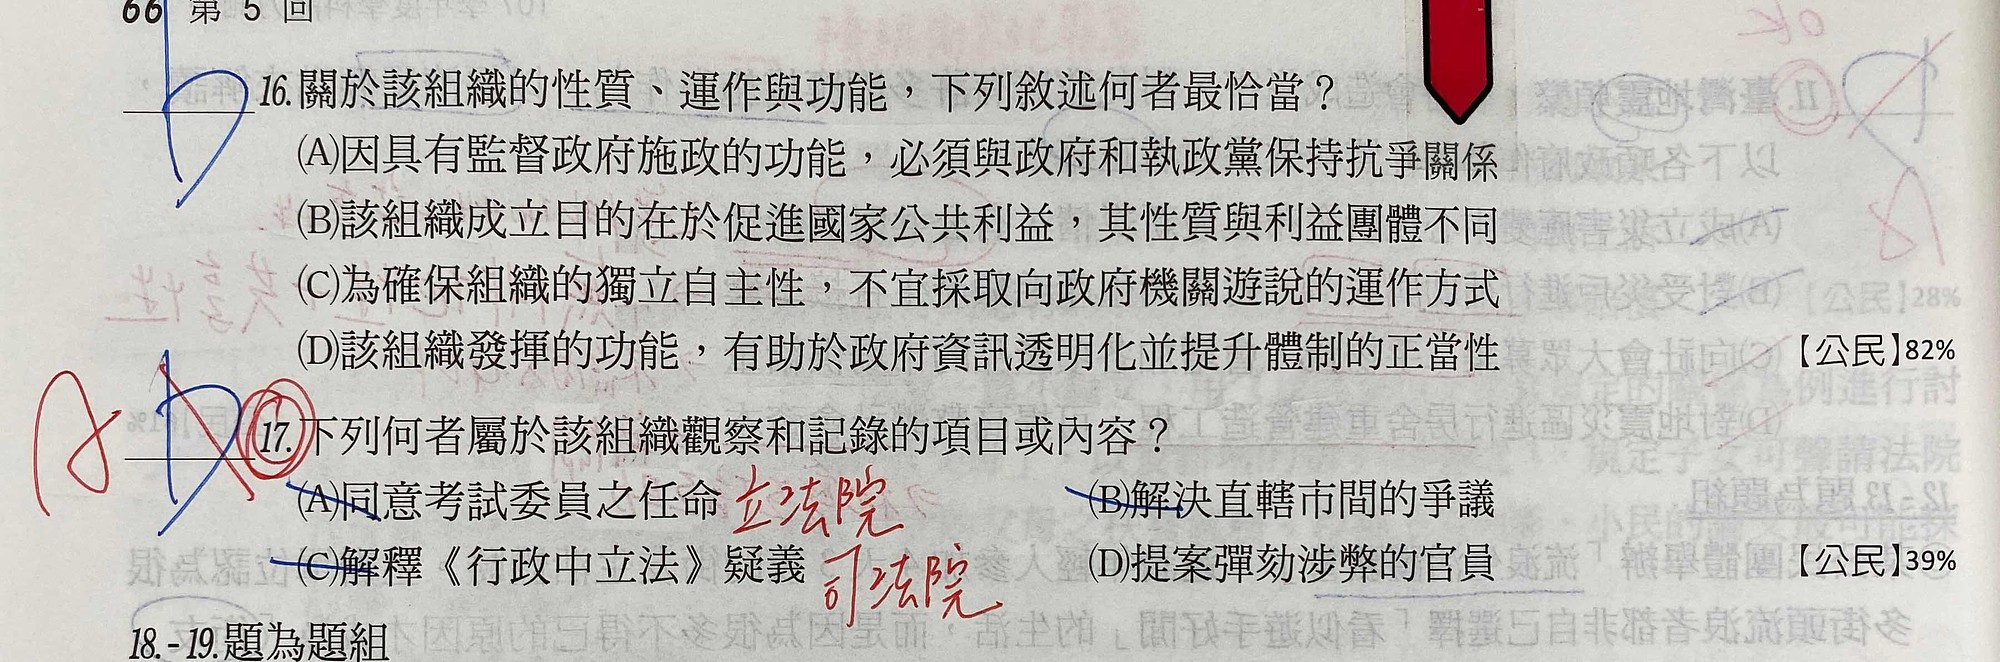 66 第 5 回
D 16.關於該組織的性質、運作與功能，下列敘述何者最恰當？
(A)因具有監督政府施政的功能，必須與政府和執政黨保持抗爭關係
(B)該組織成立目的在於促進國家公共利益，其性質與利益團體不同
(C)為確保組織的獨立自主性，不宜採取向政府機關遊說的運作方式
(D)該組織發揮的功能，有助於政府資訊透明化並提升體制的正當性 【公民】82%
A D 17.下列何者屬於該組織觀察和記錄的項目或內容？
(A)同意考試委員之任命 立法院 (B)解決直轄市間的爭議
(C)解釋《行政中立法》疑義 司法院 (D)提案彈劾涉弊的官員 【公民】39%
18.-19.題為題組